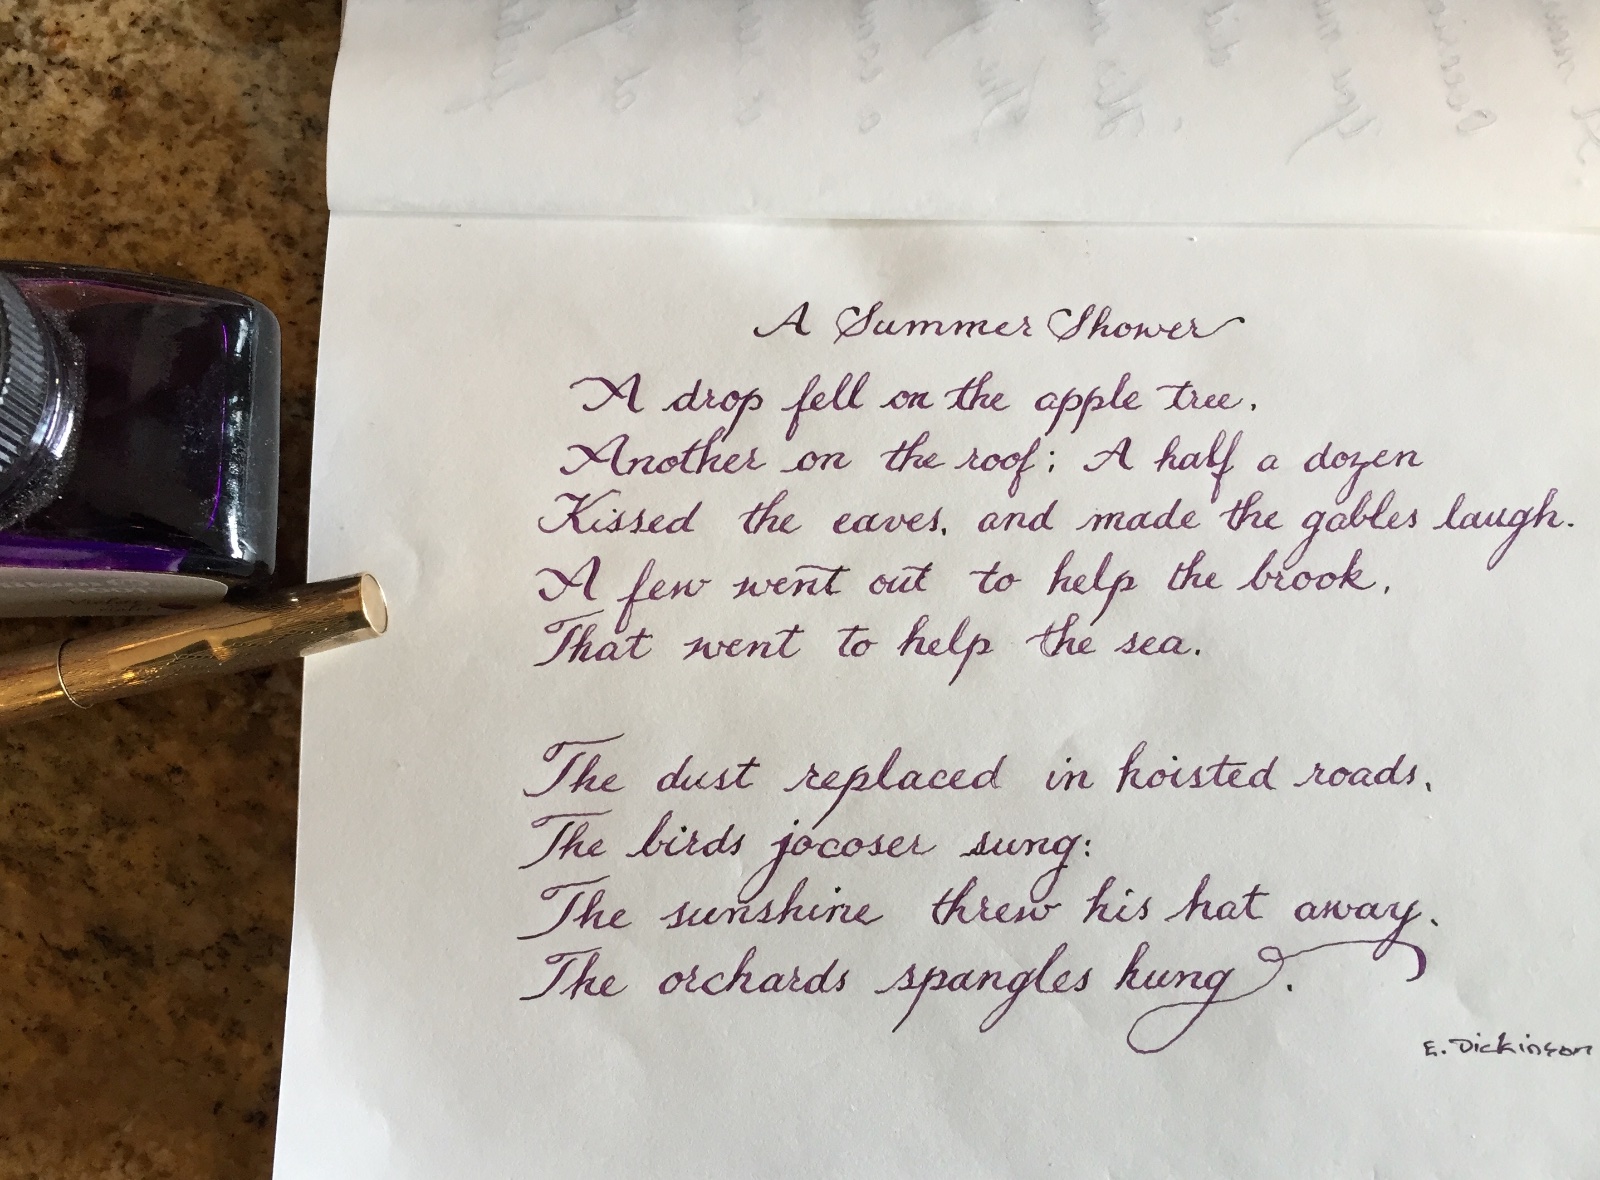 A Summer Shower
A drop fell on the apple tree.
Another on the roof; A half a dozen
Kissed the eaves, and made the gables laugh.
A few went out to help the brook,
That went to help the sea.
The dust replaced in hoisted roads,
The birds jocoser sung:
The sunshine threw his hat away,
The orchards spangles hung.
E. Dickinson